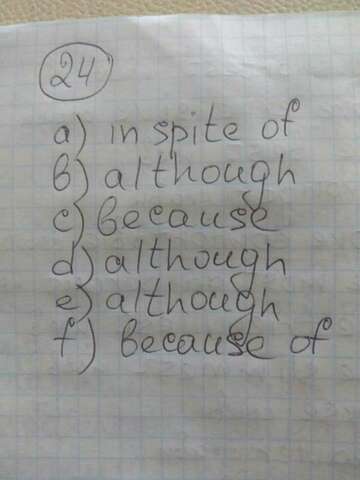 24
a) in spite of
b) although
c) because
d) although
e) although
f) because of